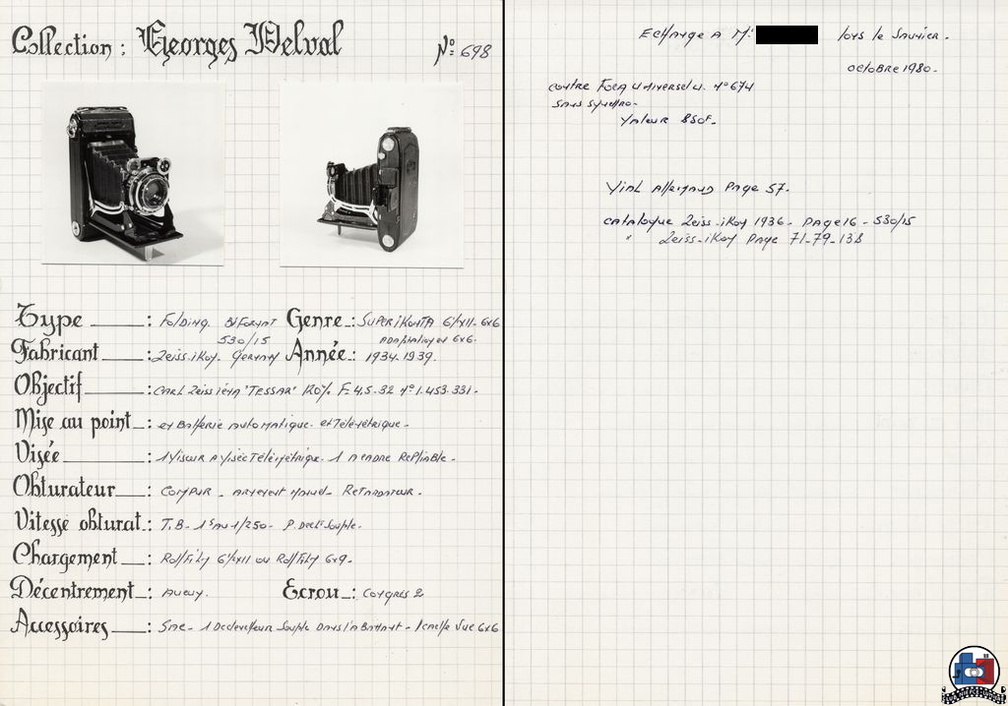 Collection : Georges Delval Nº 698
Type : Folding. Biformat Genre : Super ikonta 6½xII-6x6
530/15 adaptation en 6x6.
Fabricant : Zeiss-ikon. Germany Année : 1934.1939.
Objectif : Carl Zeiss iéna "TESSAR" 120% F=4,5-32 nº1.453.331.
Mise au point : en Batterie automatique. et Télémétrique.
Visée : 1 Viseur a visée Télémétrique. 1 a cadre Repliable.
Obturateur : Compur - armement manuel - Retardateur.
Vitesse obturat. : T.B. 1s au 1/250 - P. decl. Souple.
Chargement : Roll film 6½xII ou Roll film 6x9.
Décentrement : Aucun. Ecrou : Congrès 2
Accessoires : Sac - 1 Declencheur Souple Dans l'abattant - 1 cache Vue 6x6
Echange a Mr lons le Saunier.
octobre 1980.
contre Foca Universel nº 674
sans synchro.
Valeur 850F.
Vial Allemand Page 57.
catalogue Zeiss-ikon 1936 - page 16 - 530/15
" Zeiss-ikon Page 71-79-138